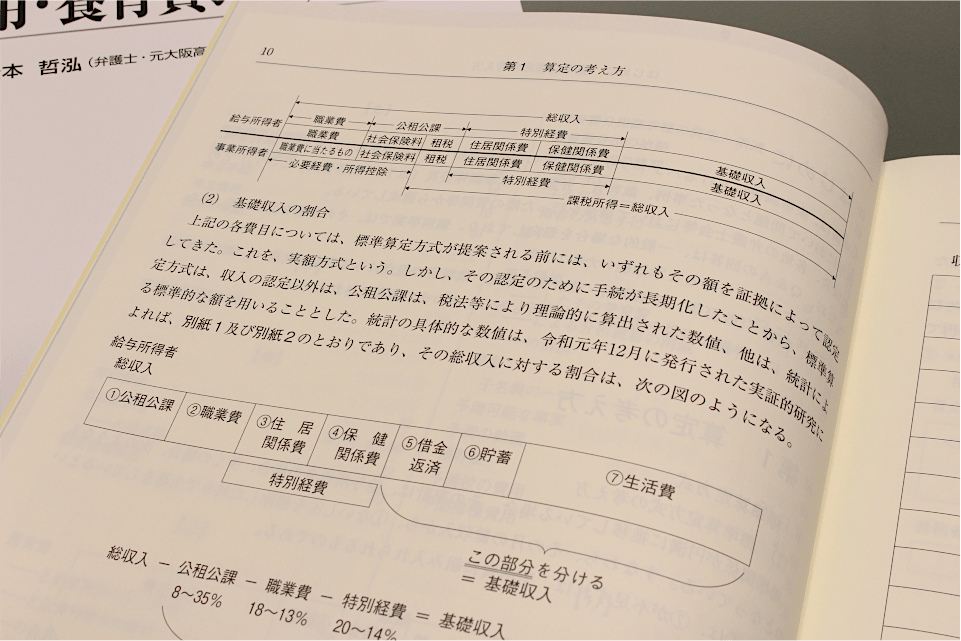 用・養育費
本 哲泓（弁護士・元大阪高
10
第1 算定の考え方
総収入
職業費 公租公課 特別経費
給与所得者 職業費 社会保険料 租税 住居関係費 保健関係費 基礎収入
事業所得者 職業費に当たるもの 社会保険料 租税 住居関係費 保健関係費 基礎収入
必要経費・所得控除 特別経費
課税所得＝総収入
(2) 基礎収入の割合
上記の各費目については、標準算定方式が提案される前には、いずれもその額を証拠によって認定
してきた。これを、実額方式という。しかし、その認定のために手続が長期化したことから、標準算
定方式は、収入の認定以外は、公租公課は、税法等により理論的に算出された数値、他は、統計によ
る標準的な額を用いることとした。統計の具体的な数値は、令和元年12月に発行された実証的研究に
よれば、別紙1及び別紙2のとおりであり、その総収入に対する割合は、次の図のようになる。
給与所得者
総収入
①公租公課 ②職業費 ③住居関係費 ④保健関係費 ⑤借金返済 ⑥貯蓄 ⑦生活費
特別経費
この部分を分ける
＝ 基礎収入
総収入 － 公租公課 － 職業費 － 特別経費 ＝ 基礎収入
8〜35% 18〜13% 20〜14%